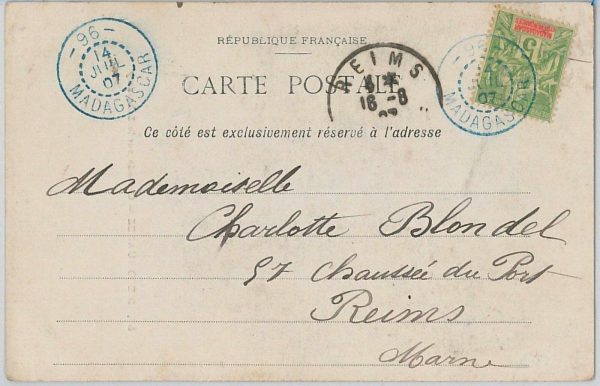 RÉPUBLIQUE FRANÇAISE
CARTE POSTALE
Ce côté est exclusivement réservé à l'adresse
-96-
14
JUIL
07
MADAGASCAR
REIMS
16-8
07
-96-
07
MADAGASCAR
5
Mademoiselle
Charlotte Blondel
57 Chaussée du Port
Reims
Marne